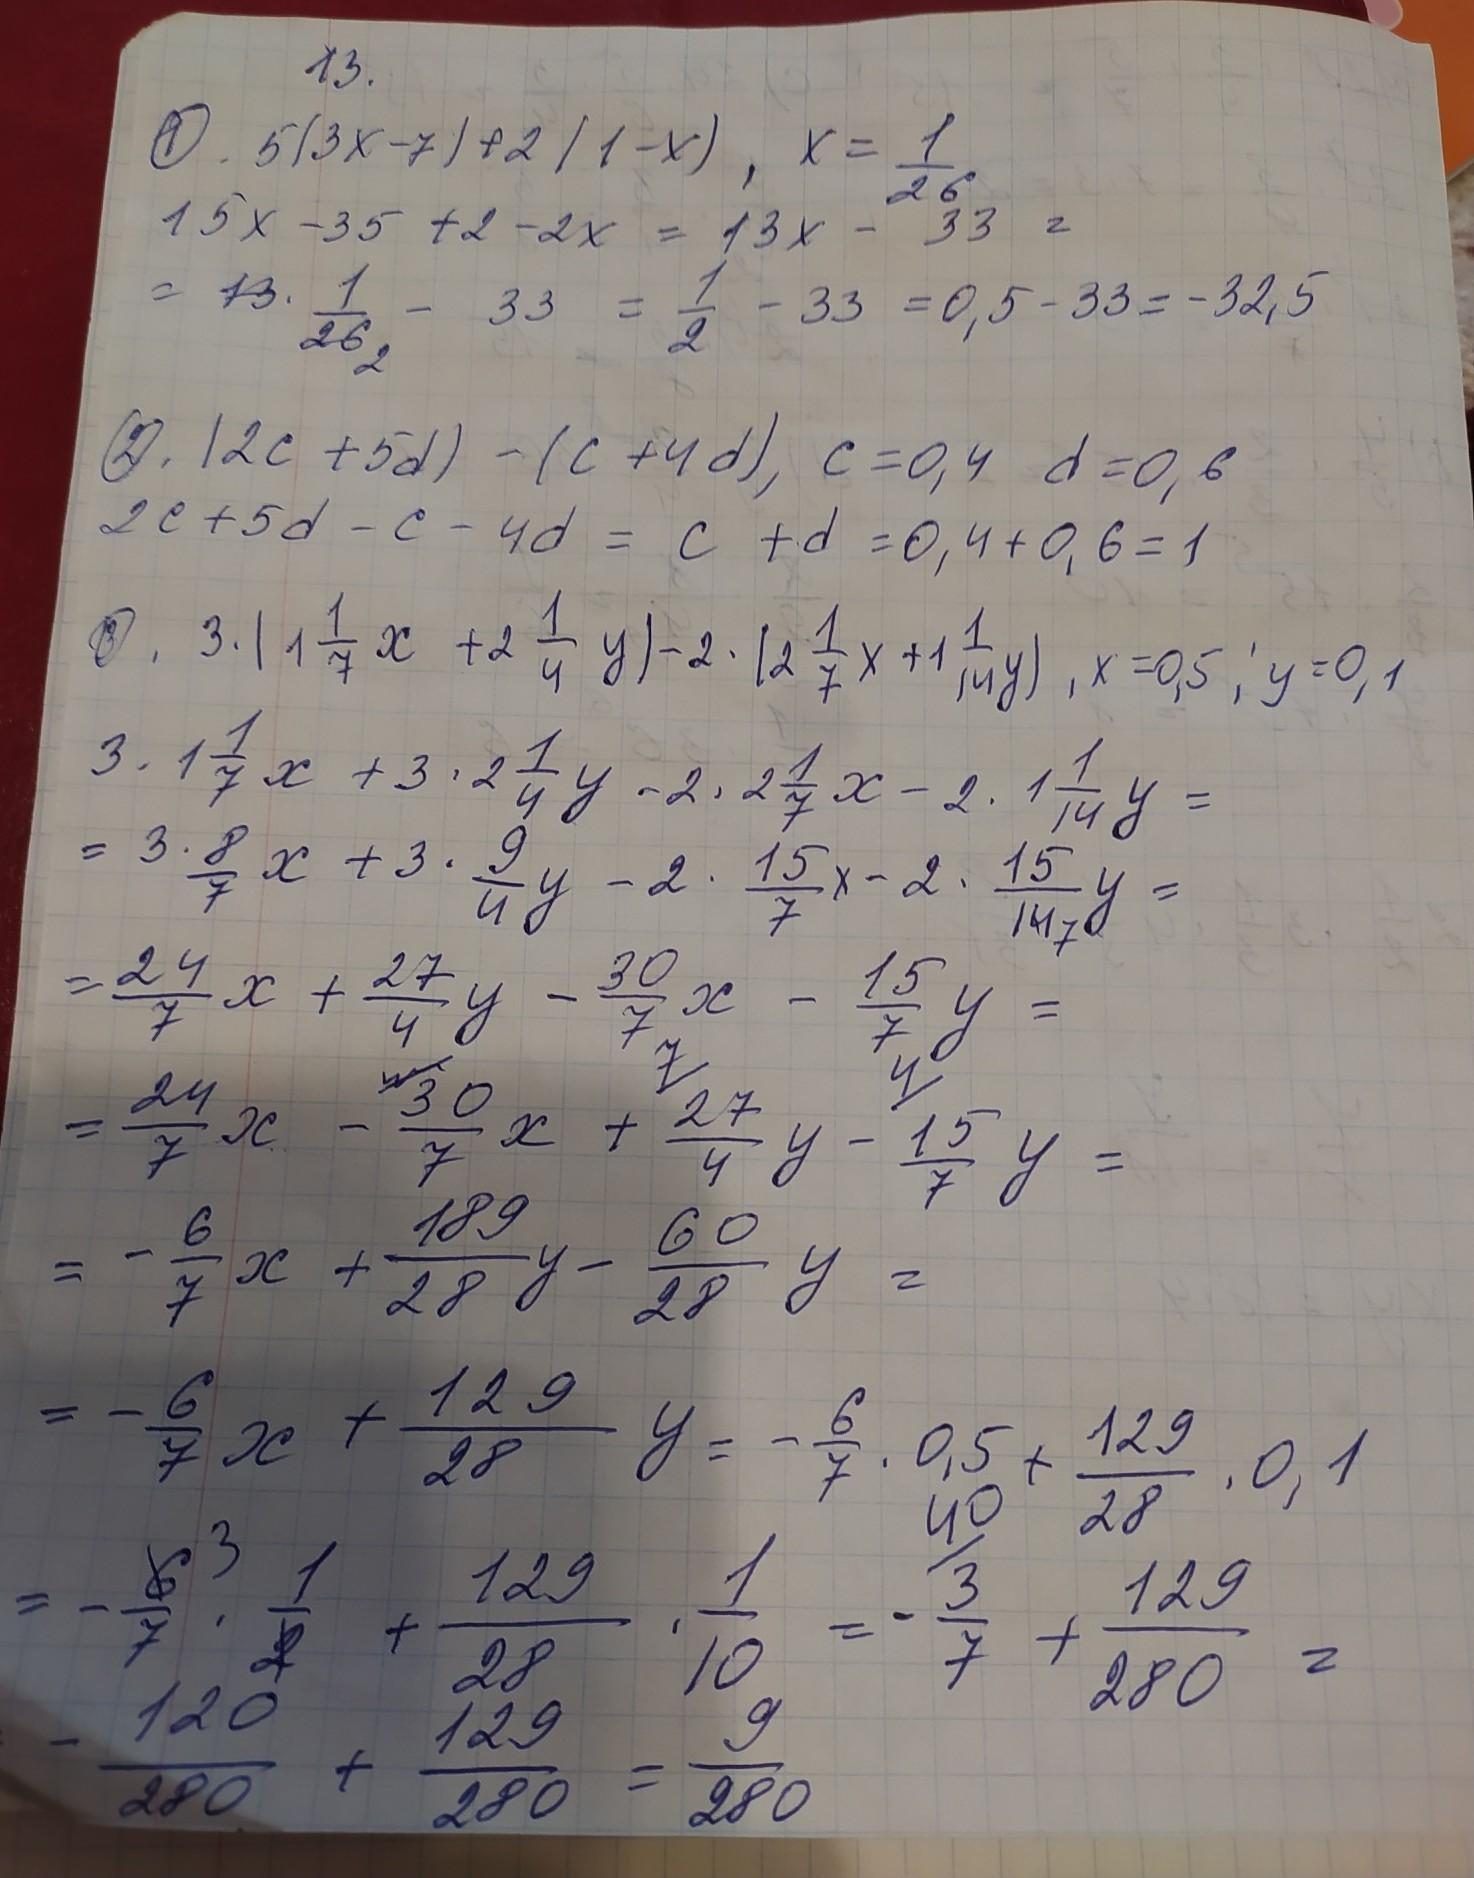 13.
① . 5(3x-7)+2(1-x), x = 1/26
15x - 35 + 2 - 2x = 13x - 33 =
= 13 · 1/26 2 - 33 = 1/2 - 33 = 0,5 - 33 = -32,5
② . (2c + 5d) - (c + 4d), c = 0,4 d = 0,6
2c + 5d - c - 4d = c + d = 0,4 + 0,6 = 1
③ . 3 · (1 1/7 x + 2 1/4 y) - 2 · (2 1/7 x + 1 1/14 y), x = 0,5 ; y = 0,1
3 · 1 1/7 x + 3 · 2 1/4 y - 2 · 2 1/7 x - 2 · 1 1/14 y =
= 3 · 8/7 x + 3 · 9/4 y - 2 · 15/7 x - 2 · 15/14 7 y =
= 24/7 x + 27/4 y - 30/7 x - 15/7 y =
= 24/7 x - 30/7 x + 7/ 27/4 y - 4/ 15/7 y =
= - 6/7 x + 189/28 y - 60/28 y =
= - 6/7 x + 129/28 y = - 6/7 · 0,5 + 129/28 · 0,1
= - 6 3/7 · 1/2 + 129/28 · 1/10 = - 40/ 3/7 + 129/280 =
= - 120/280 + 129/280 = 9/280